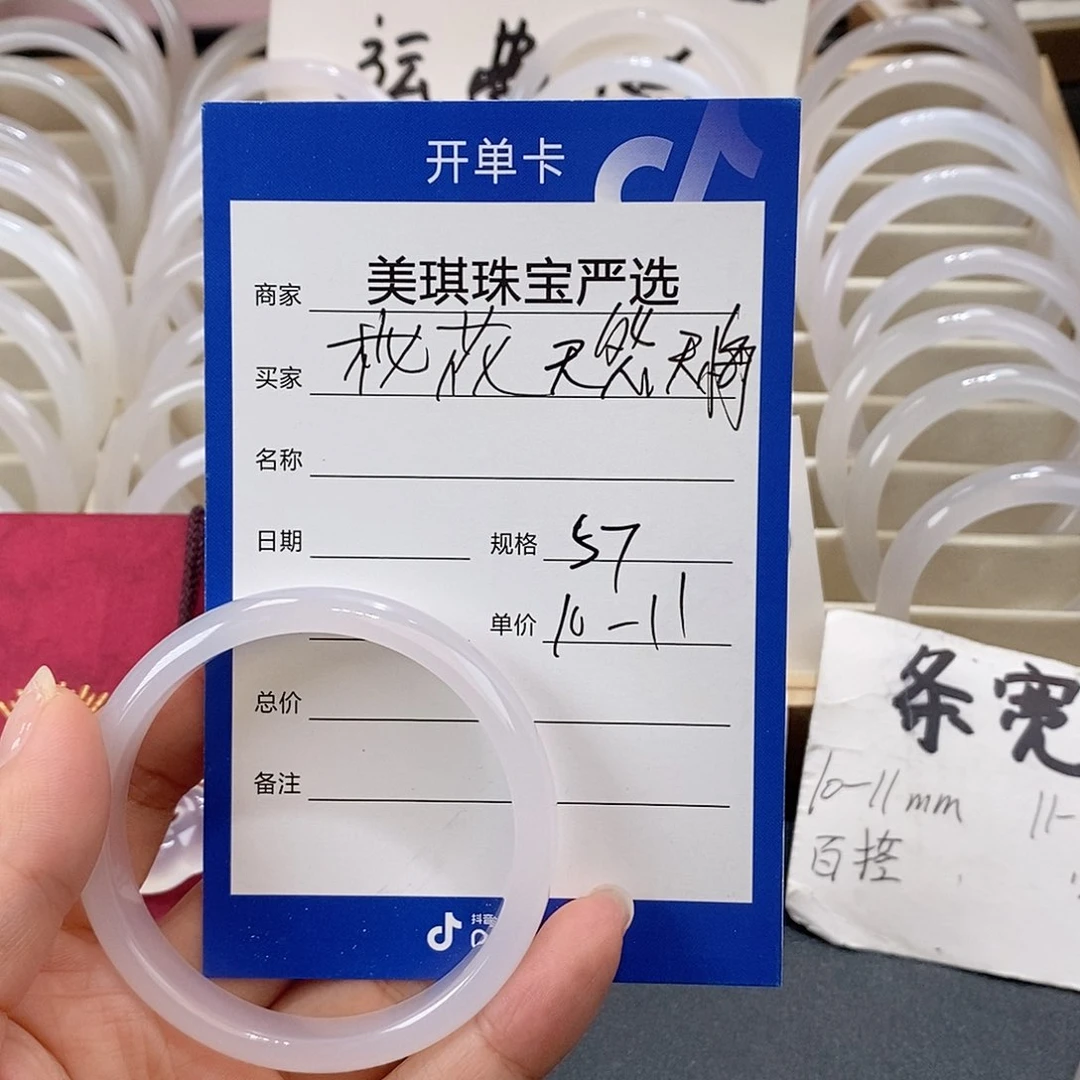 运费
开单卡
商家 美琪珠宝严选
买家 天然天
名称
日期 规格 57
单价 10-11
总价
备注
抖音
条宽
10-11mm 11-
百搭